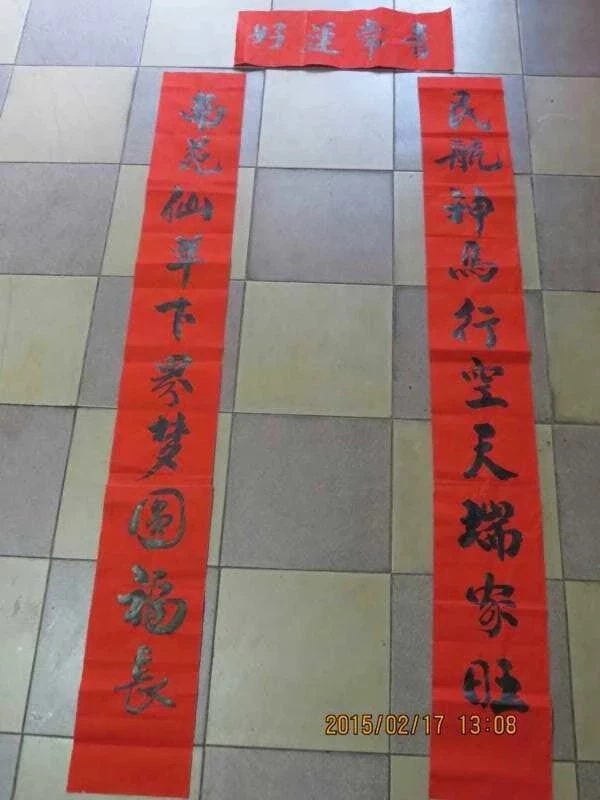 好運常青
民航神馬行空天瑞家旺
菊花仙草下界梦圓福長
2015/02/17 13:08